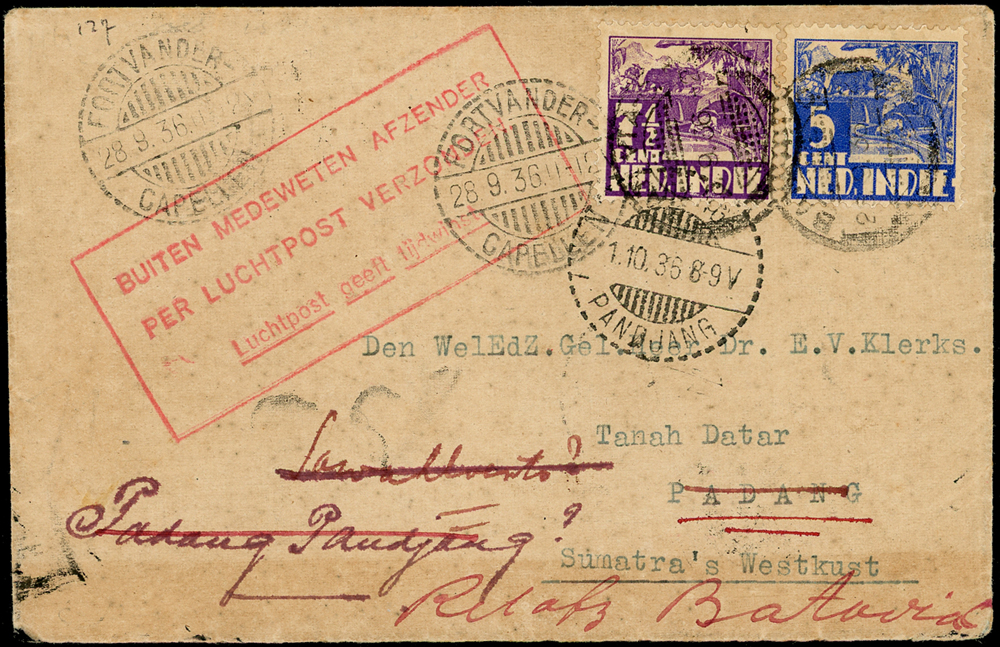 127
FORT VAN DER-
28.9.36.
CAPELLEN
BUITEN MEDEWETEN AFZENDER
PER LUCHTPOST VERZONDEN
Luchtpost geeft tijdwinst
FORT VAN DER-
28.9.36.
CAPELLEN
7½
CENT
NED. INDIE
5
CENT
NED. INDIE
1.10.36 8-9V
PANDJANG
Den WelEdZ.Gel. Heer Dr. E.V.Klerks.
Tanah Datar
PADANG
Sumatra's Westkust
Padang Pandjang?
Batavia